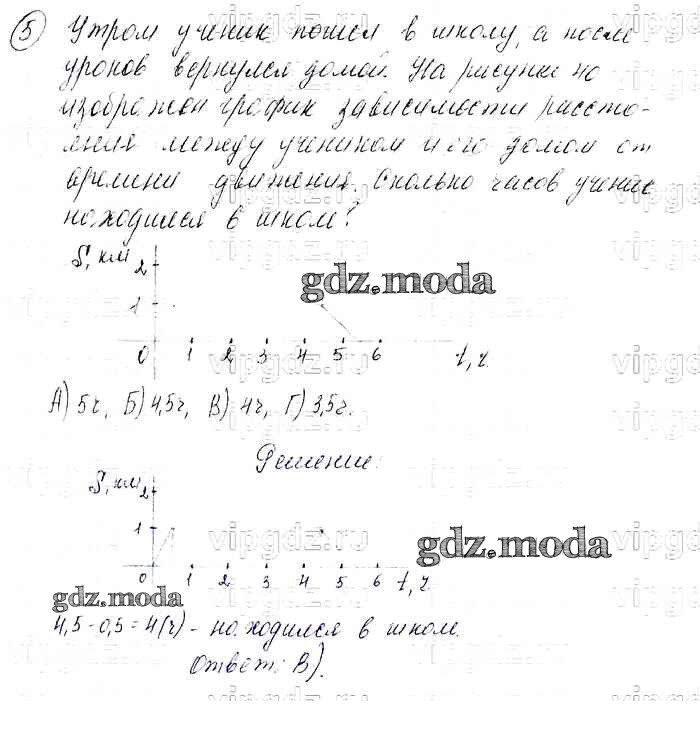 5 Утром ученик пошел в школу, а после
уроков вернулся домой. На рисунке на
изображен график зависимости рассто-
яния между учеником и его домом от
времени движения. Сколько часов ученик
находился в школе?
S, км 2
gdz.moda
1
0 1 2 3 4 5 6 t, ч.
А) 5ч, Б) 4,5ч, В) 4ч, Г) 3,5ч.
Решение:
S, км 2
1
gdz.moda
0 1 2 3 4 5 6 t, ч.
gdz.moda
4,5 - 0,5 = 4(ч) - находился в школе.
Ответ: В).
vipgdz.ru